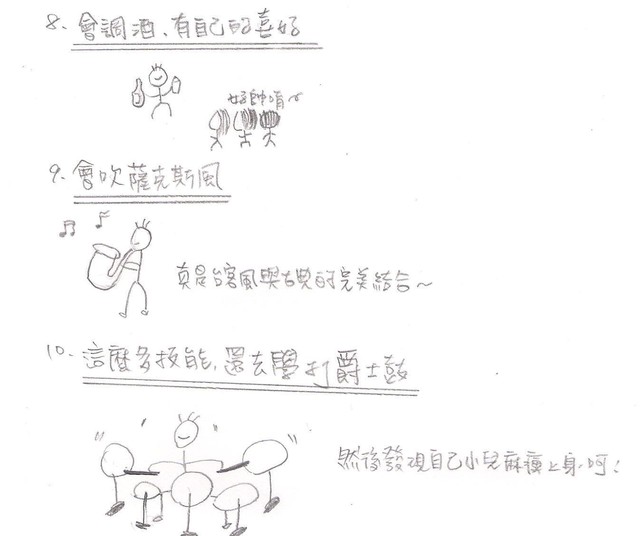 8. 會調酒、有自己的喜好
好帥唷~
9. 會吹薩克斯風
真是台客風與古典的完美結合~
10. 這麼多技能,還去學打爵士鼓
然後發現自己小兒麻痺上身.呵!